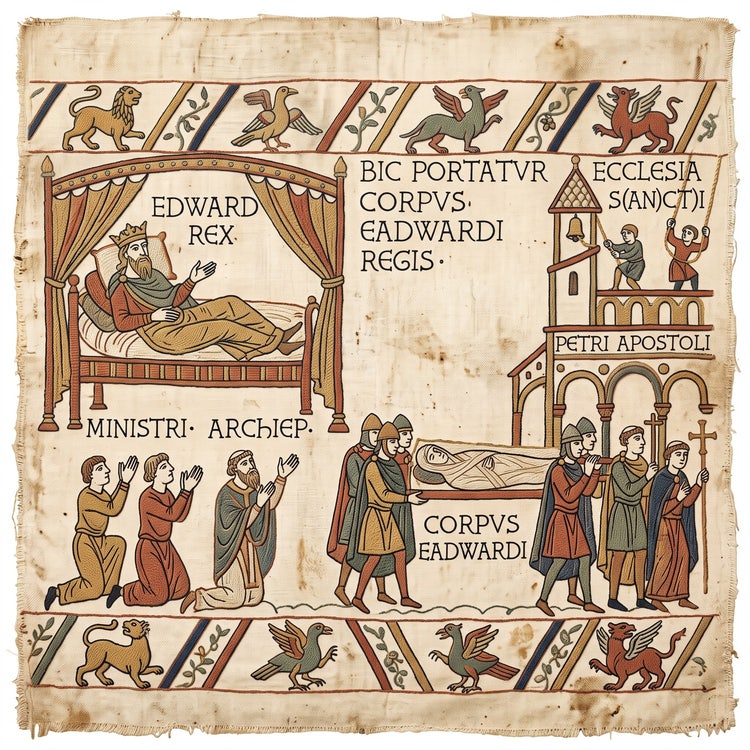 EDWARD
REX·
BIC PORTATVR
CORPVS·
EADWARDI
REGIS·
ECCLESIA
S(AN)CT)I
PETRI APOSTOLI
MINISTRI· ARCHIEP·
CORPVS
EADWARDI